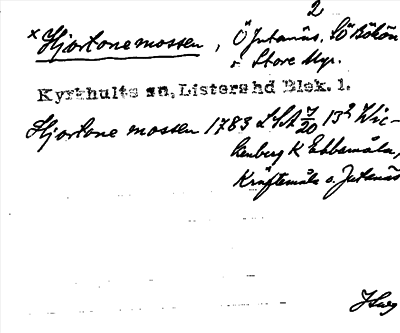 2
x Hjortonemossen, Ö Jutanäs. SÖ Bökön
o Store Myr.
Kyrkhults sn, Listers hd Blek. l.
Hjortone mossen 1783 LSA 7/20 13² Wic-
kenberg K Ebbamåla,
Kräftemåla o. Jutanäs